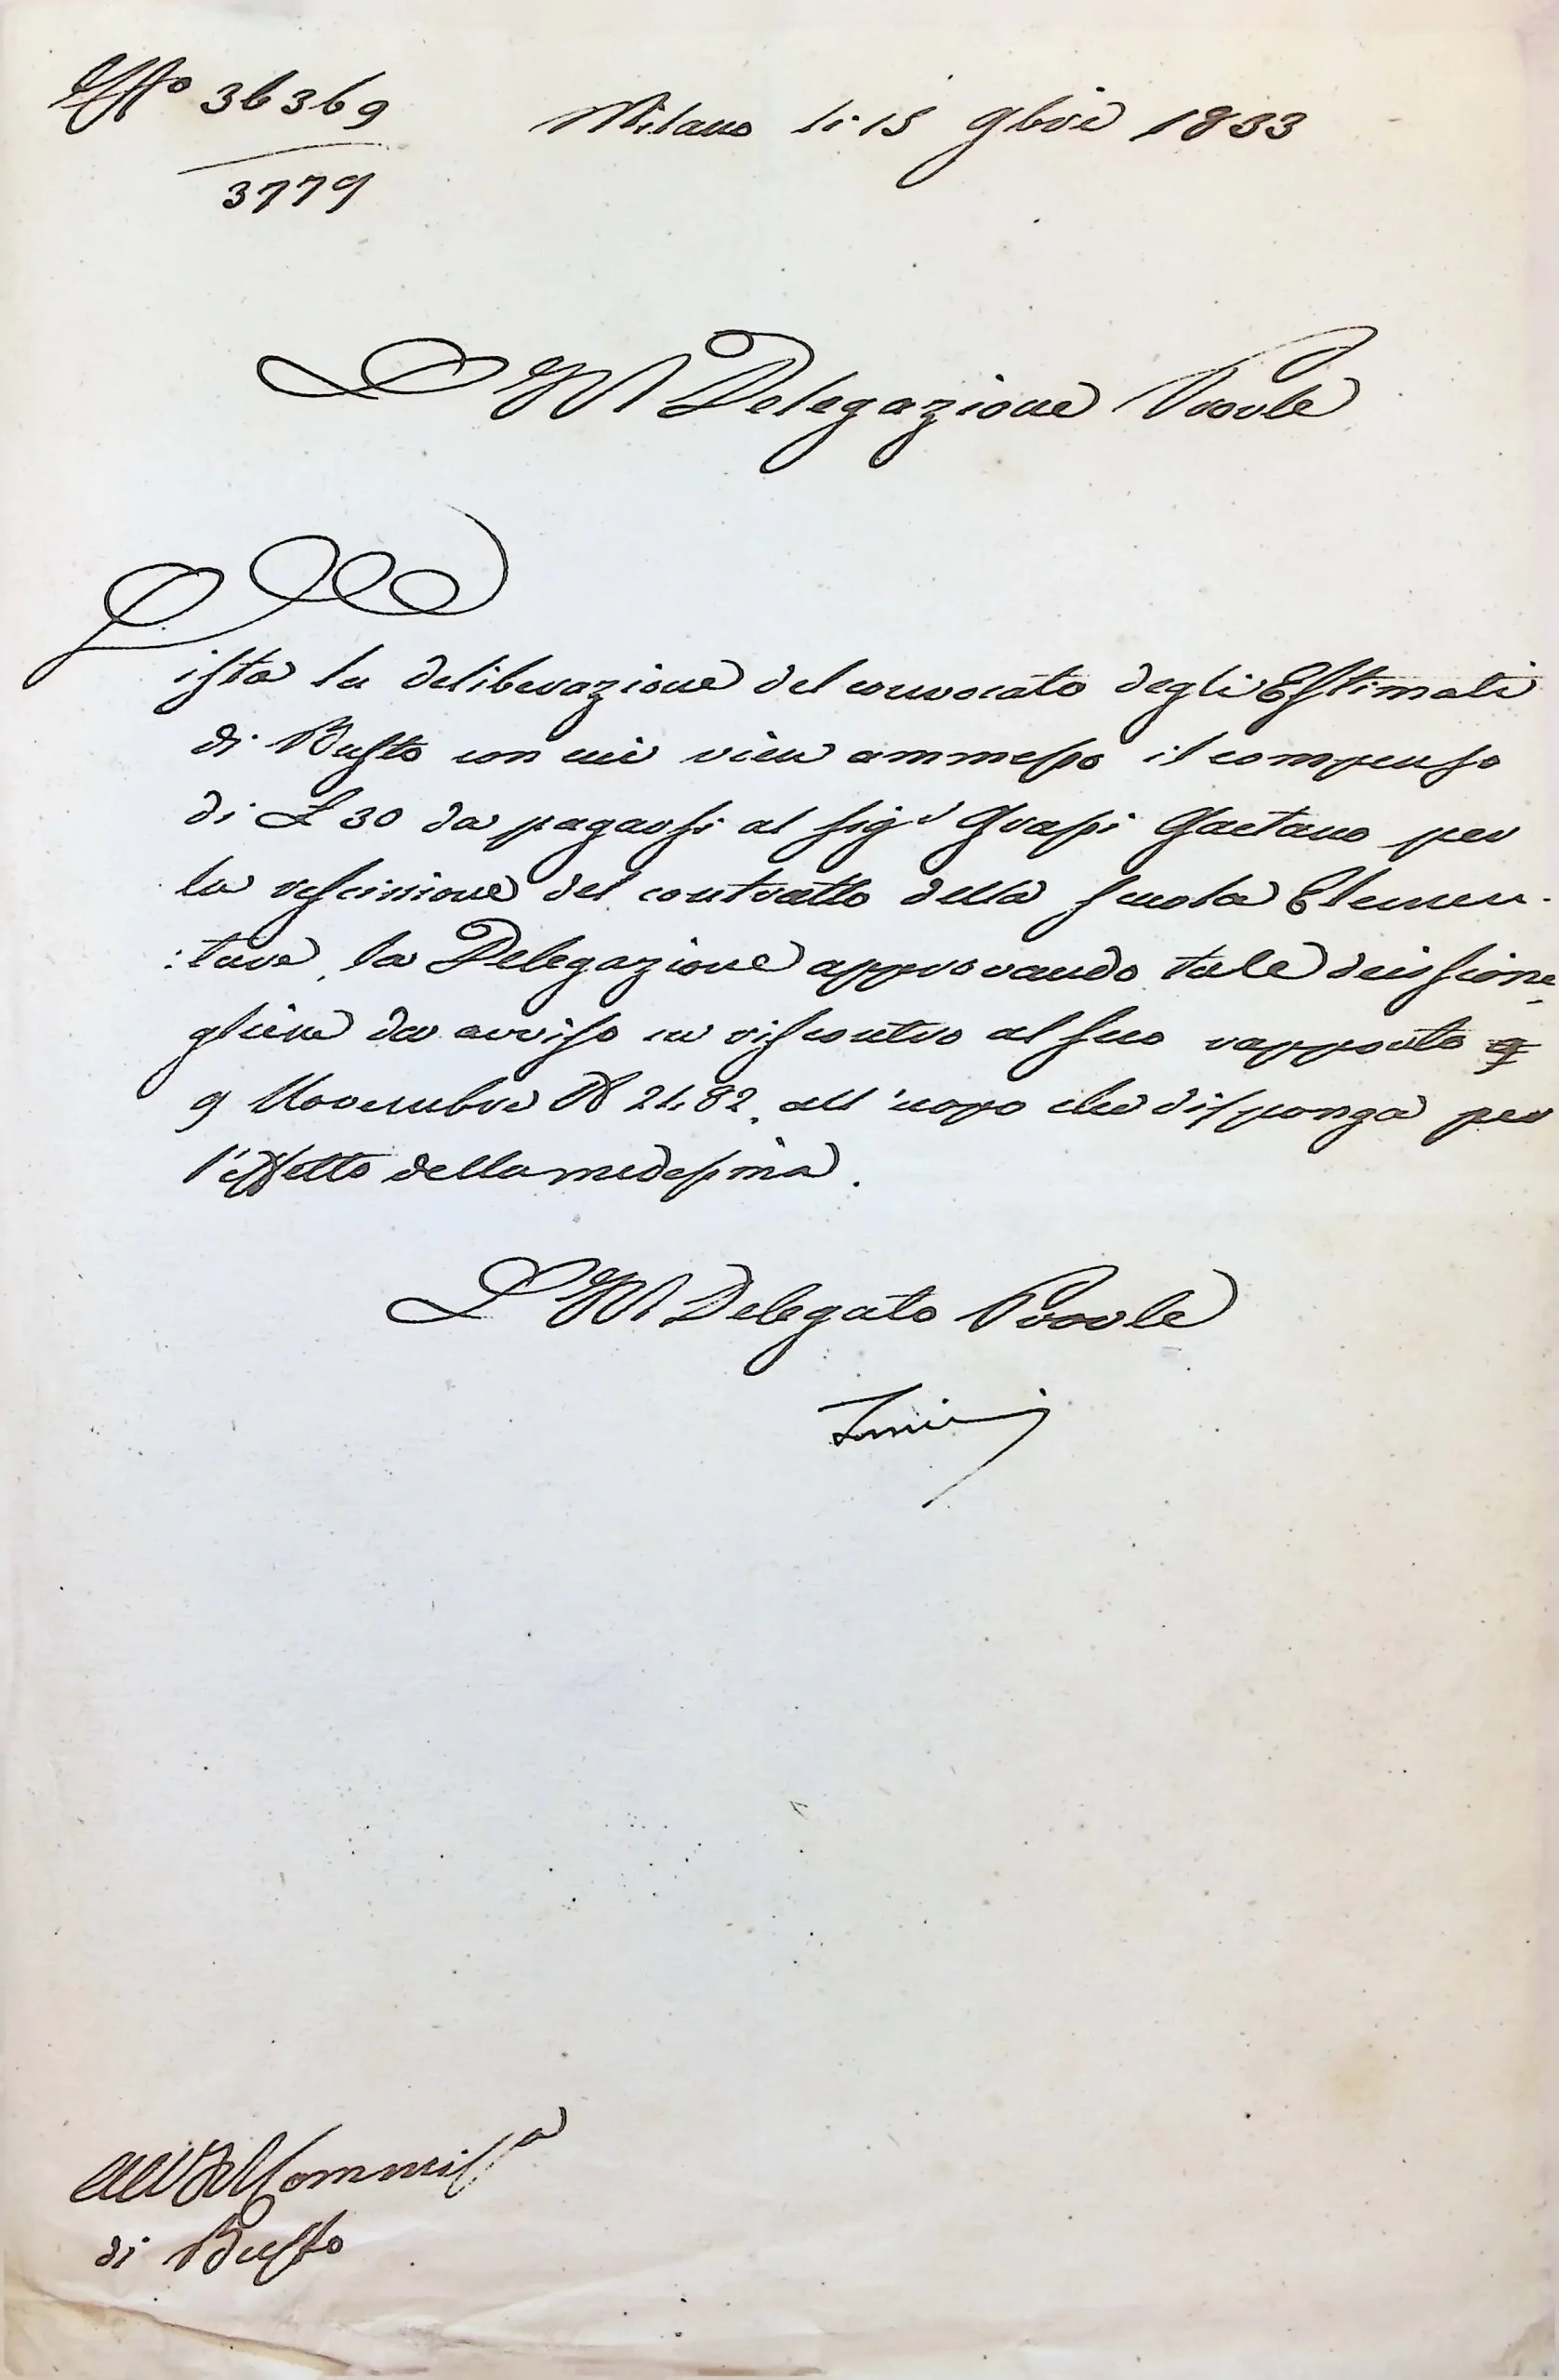 N.o 36369
3779
Milano li 15 9bre 1833
L'I R Delegazione Prov.le
Vista la deliberazione del convocato degli Estimati
di Busto con cui vien ammesso il compenso
di L 30 da pagarsi al Sig.r Grassi Gaetano per
la rescissione del contratto della scuola Elemen-
:tare, la Delegazione approvando tale decissione
gliene da avviso in riscontro al suo rapporto
9 Novembre N 2482, all'uopo che disponga per
l'effetto della medesima.
L'I R Delegato Prov.le
All'I R Commiss.o
di Busto